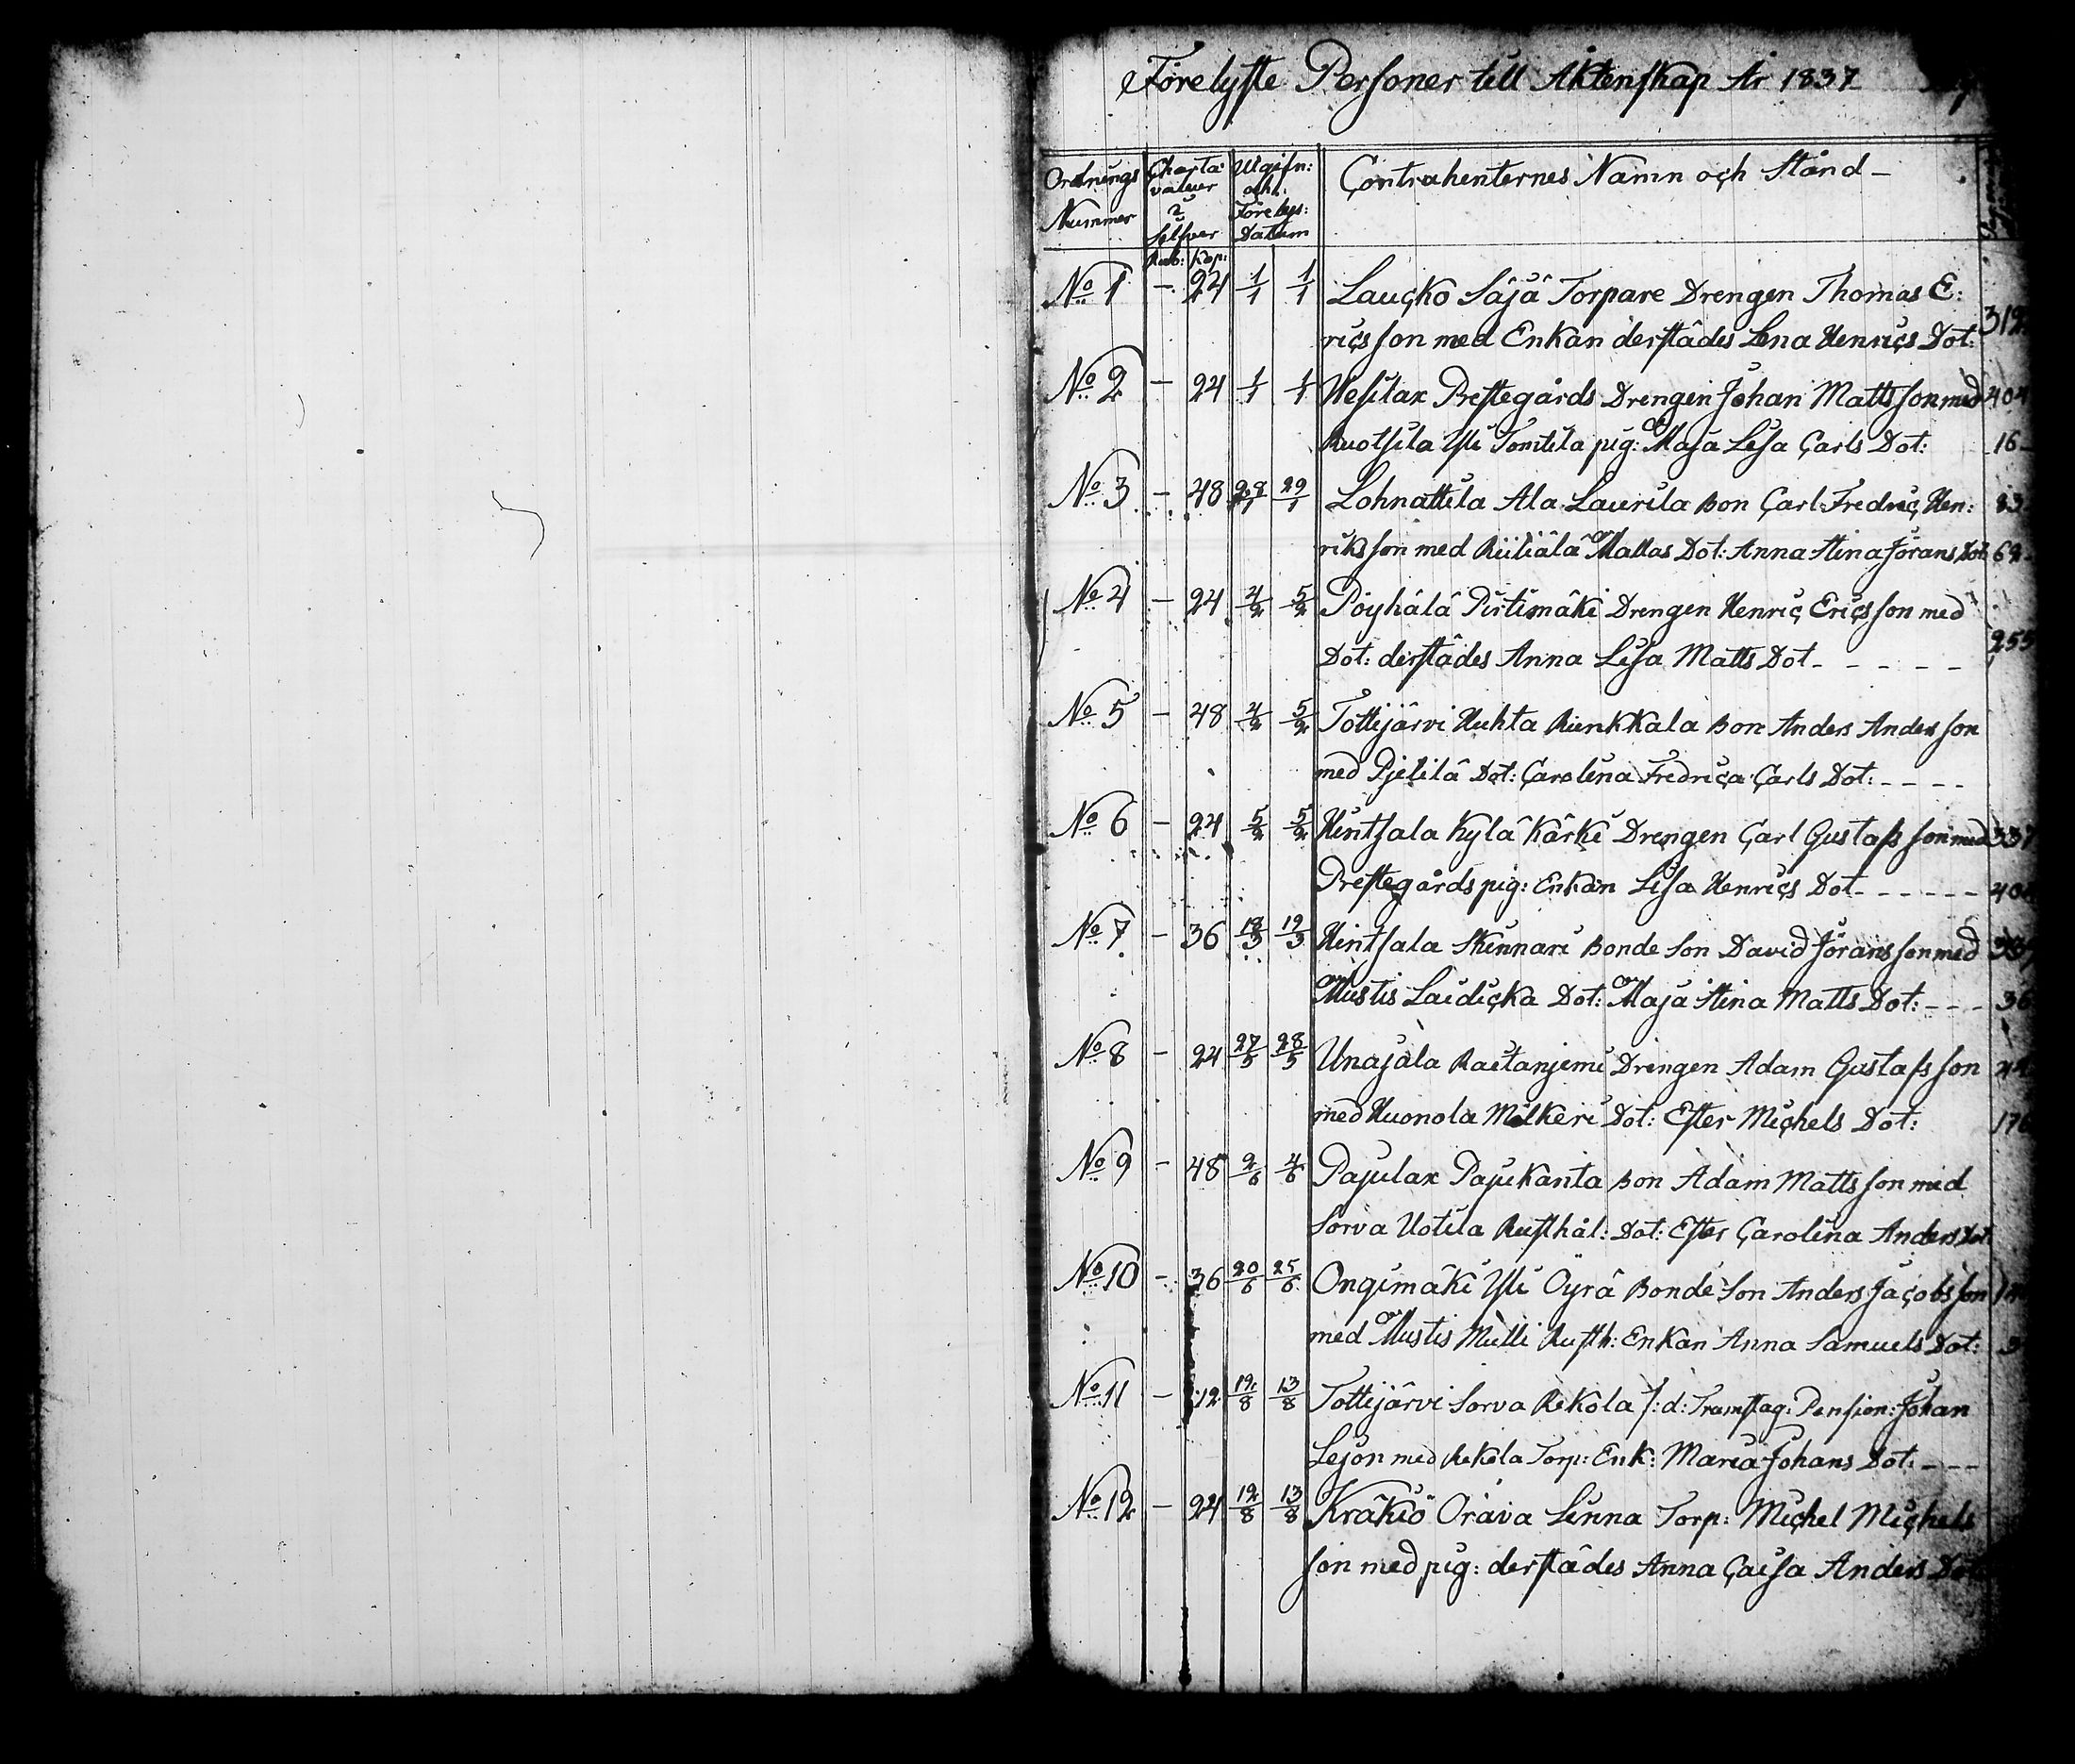 Förelyste Personer till Äktenskap År 1837
Ordnings Nummer
Charta valeur i Silfver
Rub: Kop:
Utgifn: och Förelys: Datum
Contrahenternes Namn och Stånd –
No 1 – 24 1/1 1/1 Laucko Säjä Torpare Drengen Thomas E:
ricsson med Enkan derstädes Lena Henrics Dot:
No 2 – 24 1/1 1/1 Wesilax Prestegårds Drengen Johan Mattsson med 404
Ruotsila Yli Tomtila pig: Maja Lisa Carls Dot: 16
No 3 – 48 28/1 29/1 Lohnattila Ala Laurila Bon Carl Fredric Hen: 83
riksson med Riiliälä Mattas Dot: Anna Stina Jörans Dot:
No 4 – 24 4/2 5/2 Pöyhälä Pirtimäki Drengen Henric Ericsson med
Dot: derstädes Anna Lisa Matts Dot – – – – – 255
No 5 – 48 4/2 5/2 Tottijärvi Huhta Runkkala Bon Anders Andersson
med Pjelilä Dot: Carolina Fredrica Carls Dot: – – – –
No 6 – 24 5/2 5/2 Hintsala Kylä Kärki Drengen Carl Gustafsson med 337
Prestegårds pig: Enkan Lisa Henrics Dot – – – – – –
No 7 – 36 18/3 19/3 Hintsala Skinnari Bonde Son David Jöransson med
Mustis Laidicka Dot: Maja Stina Matts Dot: – – – 36
No 8 – 24 27/5 28/5 Unajala Raitanjemi Drengen Adam Gustafsson
med Huonola Milkeri Dot: Ester Michels Dot: 176
No 9 – 48 2/6 4/6 Pajulax Pajukanta Bon Adam Mattsson med
Sorva Uotila Rusthål: Dot: Ester Carolina Anders Dot
No 10 – 36 20/6 25/6 Ongimäki Yli Öyrä Bonde Son Anders Jacobsson
med Mustis Mulli Rusth: Enkan Anna Samuels Dot:
No 11 – 12 12/8 13/8 Tottijärvi Sorva Rekola f: d: Trumslag: Pension: Johan
Lejon med Rekola Torp: Enk: Maria Johans Dot: – – –
No 12 – 24 12/8 13/8 Kräkiö Orava Linna Torp: Michel Michels
son med pig: derstädes Anna Caisa Anders Dot